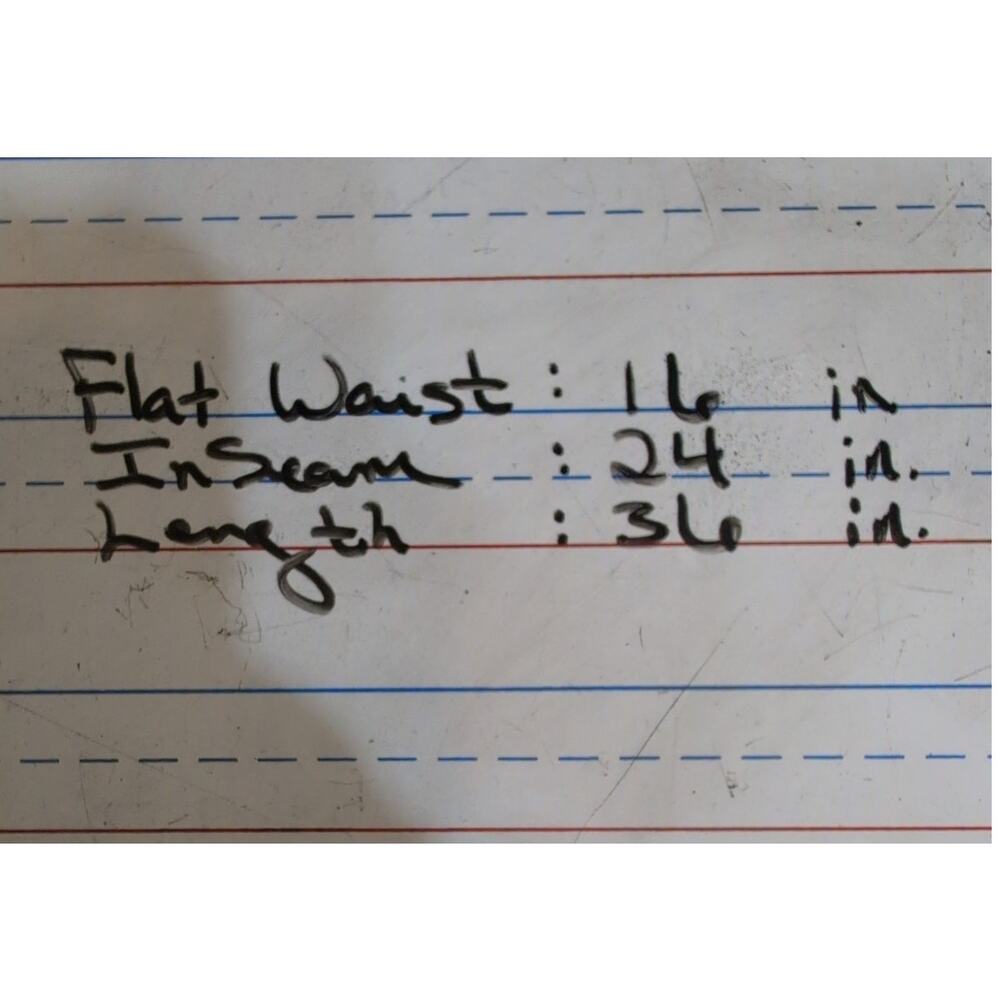 Flat Waist : 16 in
InSeam : 24 in.
Length : 36 in.